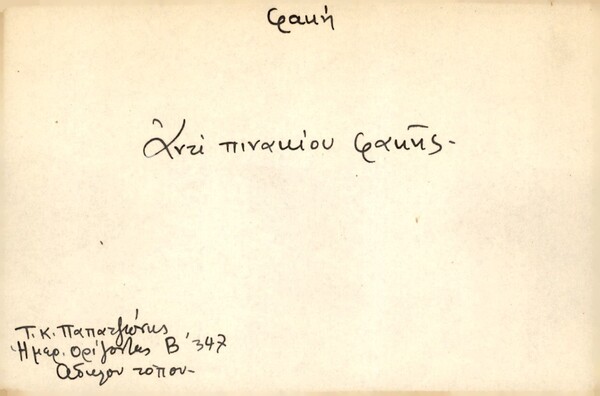 φακή
Ἀντί πινακίου φακῆς.
Τ. Κ. Παπατζώνης
Ἡμερ. Ορίζοντες Β΄ 347
Αδήλου τόπου.